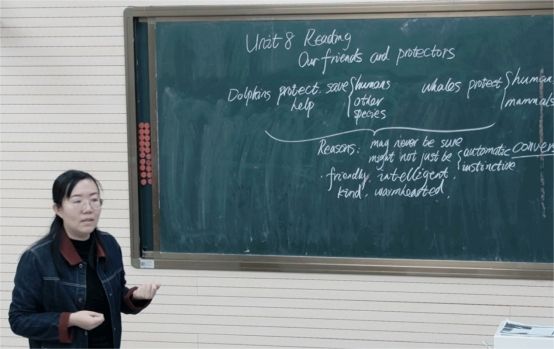 Unit 8 Reading
Our friends and protectors
Dolphins protect save humans whales protect human
help other mammals
species
Reasons: may never be sure
might not just be automatic conver
friendly intelligent instinctive
kind, warmhearted